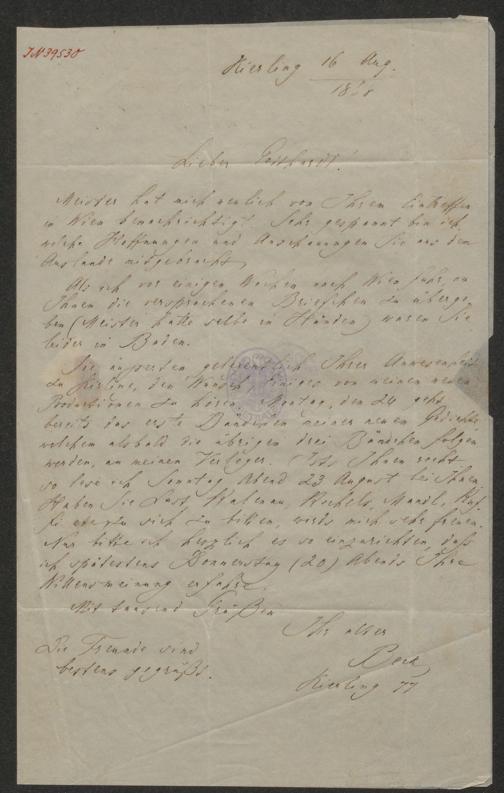 IN 39530
Kierling 16 Aug.
18
Lieber Gotthardt!
Meister hat mich neulich von Ihrem Eintreffen
in Wien benachrichtigt. Sehr gespannt bin ich
welche Hoffnungen und Anschauungen Sie aus dem
Auslande mitgebracht.
Als ich vor einigen Wochen nach Wien fuhr, um
Ihnen die versprochenen Briefchen zu überge-
ben (Meister hatte selbe in Händen) waren Sie
leider in Baden.
Sie äußerten gelegentlich Ihrer Anwesenheit
zu Kierling, den Wunsch Einiges von meinen neuen
Produktionen zu hören. Montag, den 24 geht
bereits das erste Bändchen meiner neuen Gedichte
welchem alsbald die übrigen drei Bändchen folgen
werden, an meinen Verleger. Ists Ihnen recht
so lese ich Sonntag Abend 23 August bei Ihnen.
Haben Sie Lust
zu sich zu bitten, wirds mich sehr freuen.
Nur bitte ich herzlich es so einzurichten, daß
ich spätestens Donnerstag (20) Abends Ihre
Willensmeinung erfahre.
Mit tausend Grüßen
Ihr alter
Beck
Kierling 77
Die Freunde sind
bestens gegrüßt.